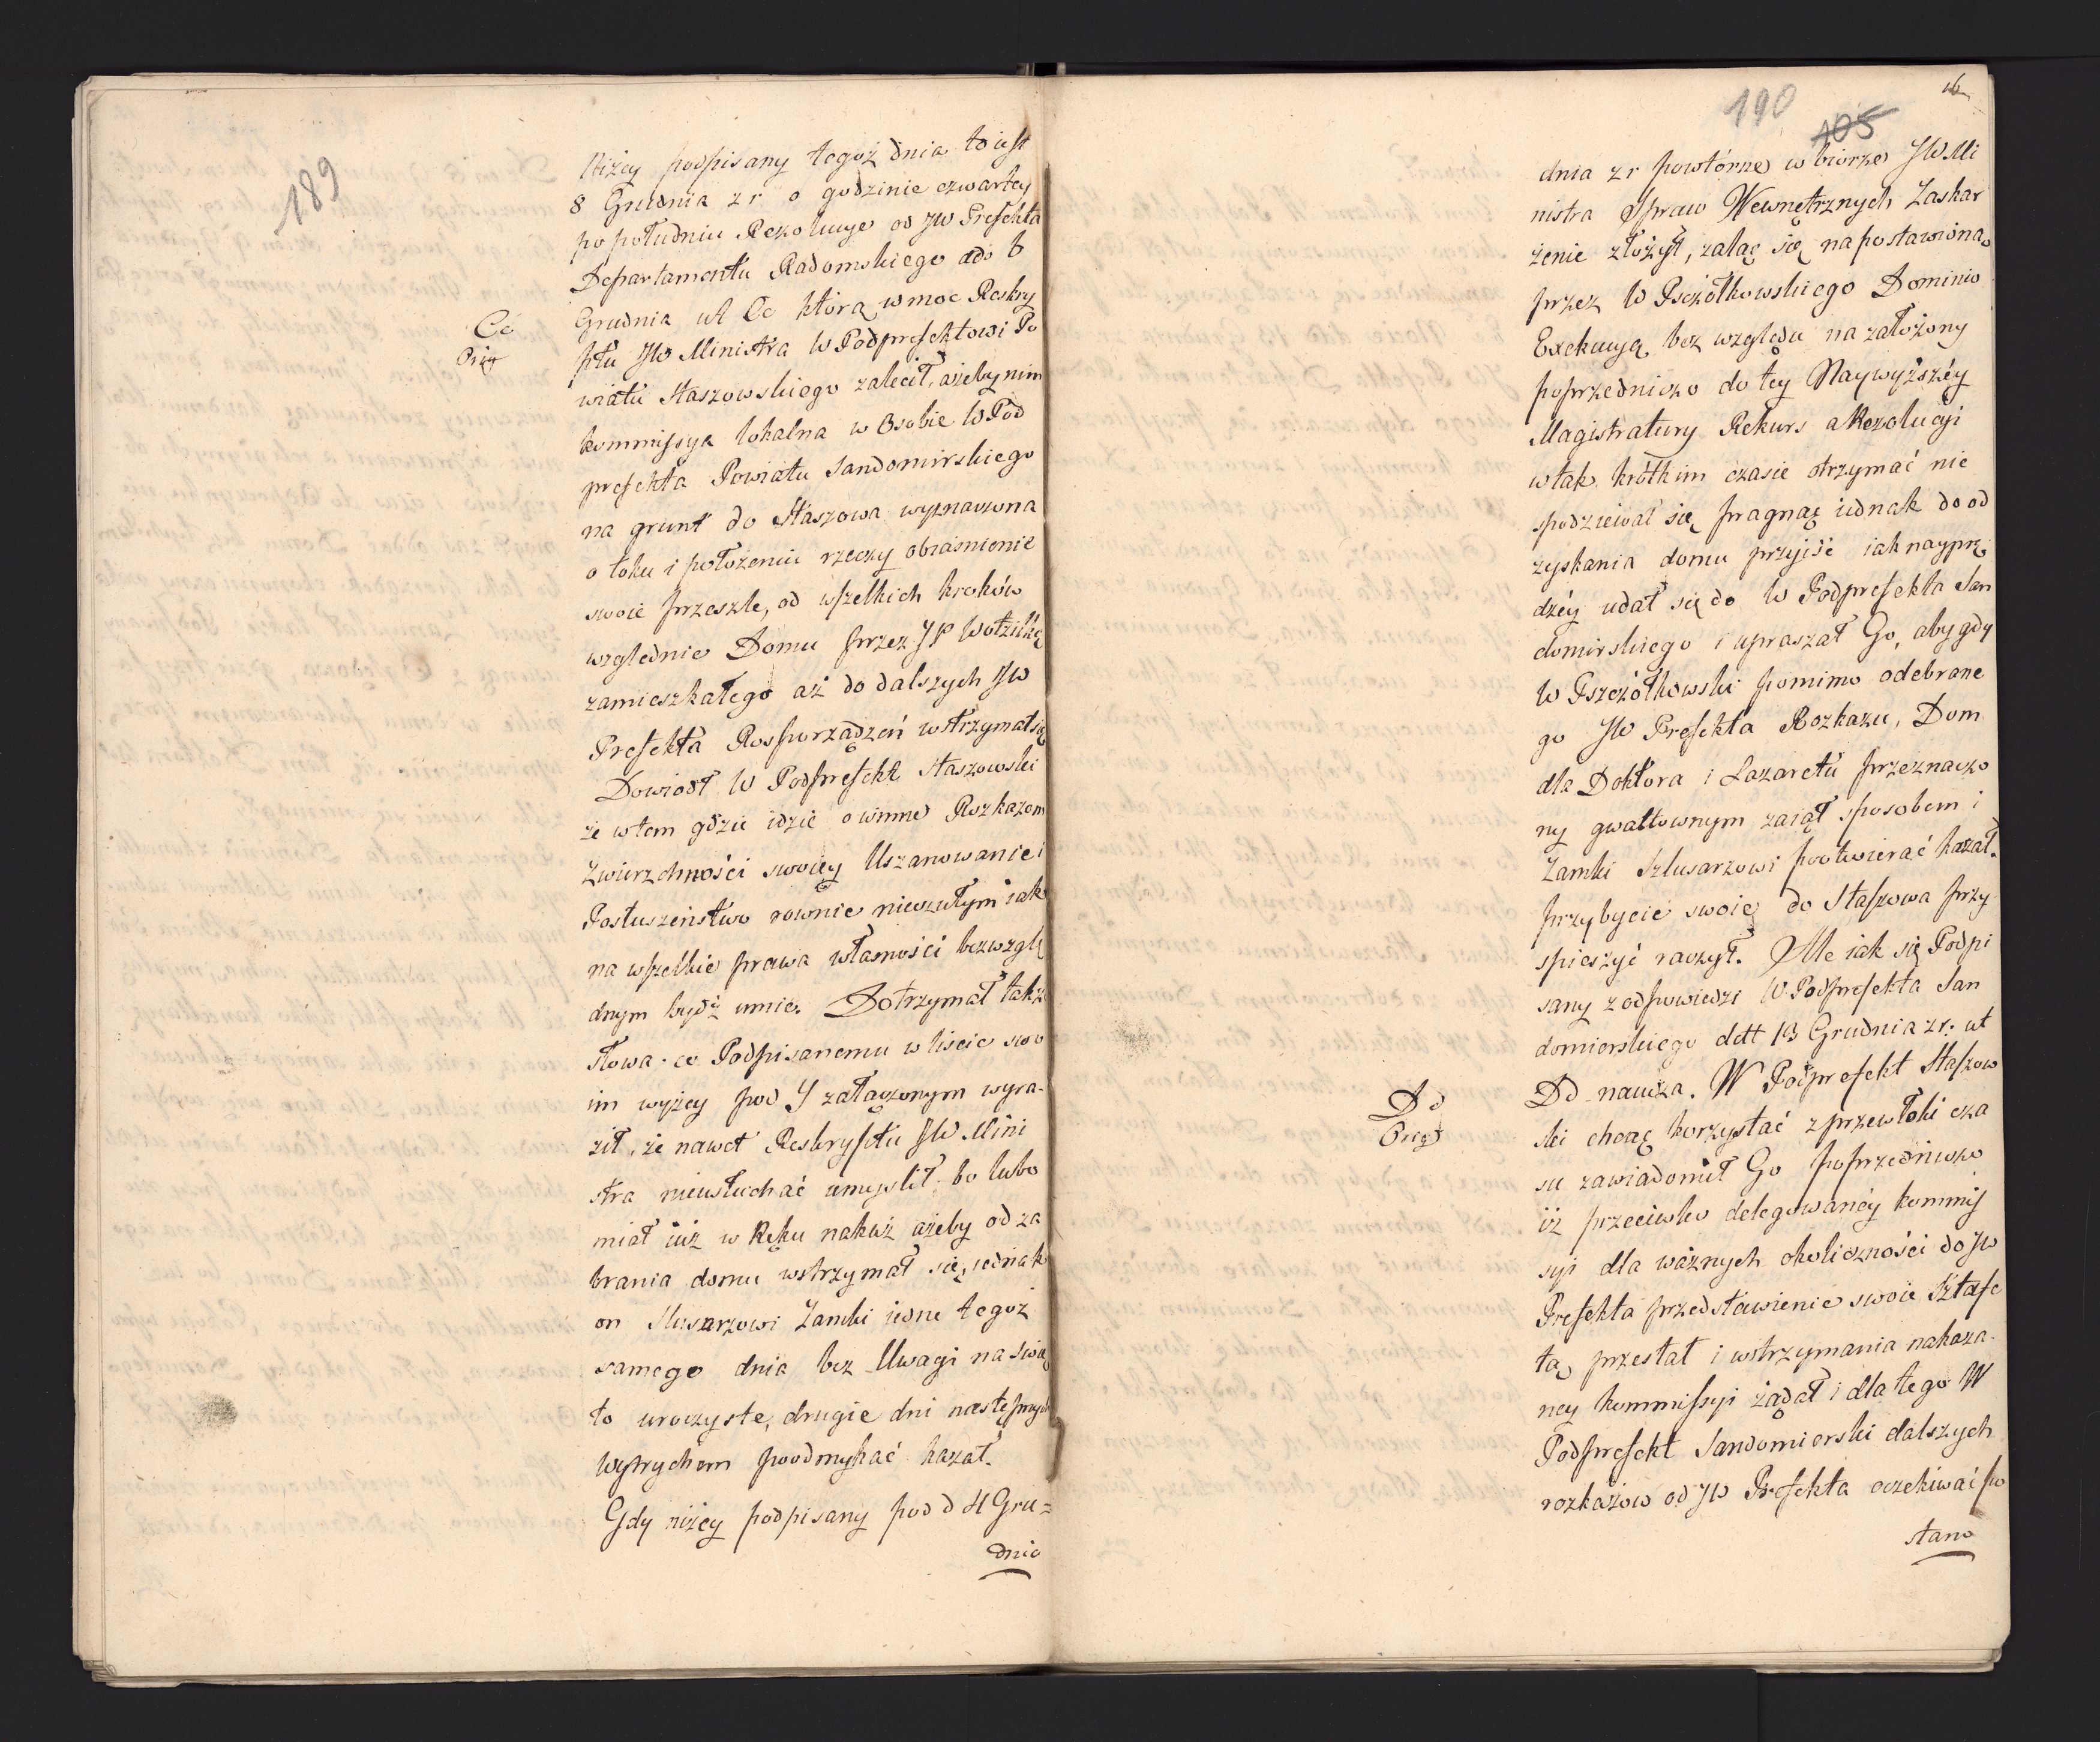 189
Niżey podpisany tegoż dnia to iest
8 Grudnia z r o godzinie czwartey
po południu Rezolucye od JW Prefekta
Departamentu Radomskiego ddo 6
Grudnia ut Cc którą w moc Reskry
Cc
Orig
ptu JW Ministra W Podprefektowi Po
wiatu Staszowskiego zalecił, ażeby nim
kommissya lokalna w Osobie W Pod
prefekta Powiatu Sandomirskiego
na grunt do Staszowa wyznaczona
o toku i położeniu rzeczy obiaśnienie
swoie przeszle, od wszelkich kroków
względnie Domu przez JP
zamieszkałego aż do dalszych JW
Prefekta Rosporządzeń wstrzymał się
Dowiódł W Podprefekt Staszowski
że w tem gdzie idzie o winne Rozkazom
Zwierzchności swoiey Uszanowanie i
Posłuszeństwo rownie nieczułym iak
na wszelkie prawa własności bezwzglę
dnym bydź umie. Dotrzymał takż
słowa co Podpisanemu w liście swo
im wyżey pod Y załączonym wyra-
ził, że nawet Reskryptu JW Mini
stra nieusłuchać umyslił. bo lubo
miał iuż w Ręku nakaz ażeby od za
brania domu wstrzymał się, iednak
on Slusarzowi Zamki iedne tegoż
samego dnia bez Uwagi na świę
to uroczyste, drugie dni następnych
wytrychem poodmykać kazał.
Gdy niżey podpisany pod d 11 Gru=
dnia
190
105
dnia z r powtórne w biórze JW Mi
nistra Spraw Wewnętrznych Zaskar
żenie złożył, żaląc się na postawioną
przez W Psczółkowskiego Dominio
Exekucyą bez względu na założony
poprzedniczo do tey Naywyższéy
Magistratury Rekurs a Rezolucyi
w tak krótkim czasie otrzymać nie
spodziewał się pragnąc iednak do od
zyskania domu przyiść iak nayprę
dzéy udał się do W Podprefekta San
domirskiego i upraszał Go, aby gdy
W Pszczółkowski pomimo odebrane
go JW Prefekta Rozkazu, Dom
dla Doktora i Lazaretu przeznaczo
ny gwałtownym zaiął sposobem i
Zamki Szlusarzowi pootwierać kazał.
przybycie swoie do Staszowa przy
spieszyć raczył. Ale iak się Podpi
sany z odpowiedzi W Podprefekta San
domierskiego ddtt 13 Grudnia z r. ut
Dd
Orig
Dd naucza. W Podprefekt Staszow
ski chcąc korzystać z przewłoki cza
su zawiadomił Go poprzedniczo
iż przeciwko délegowanéy kommis
syi dla ważnych okoliczności do JW
Prefekta przedstawienie swoie Sztafe
tą przestał i wstrzymania nakaza-
ney kommissyi żądał i dla tego W
Podprefekt Sandomierski dalszych
rozkazow od JW Prefekta oczekiwać po
stano